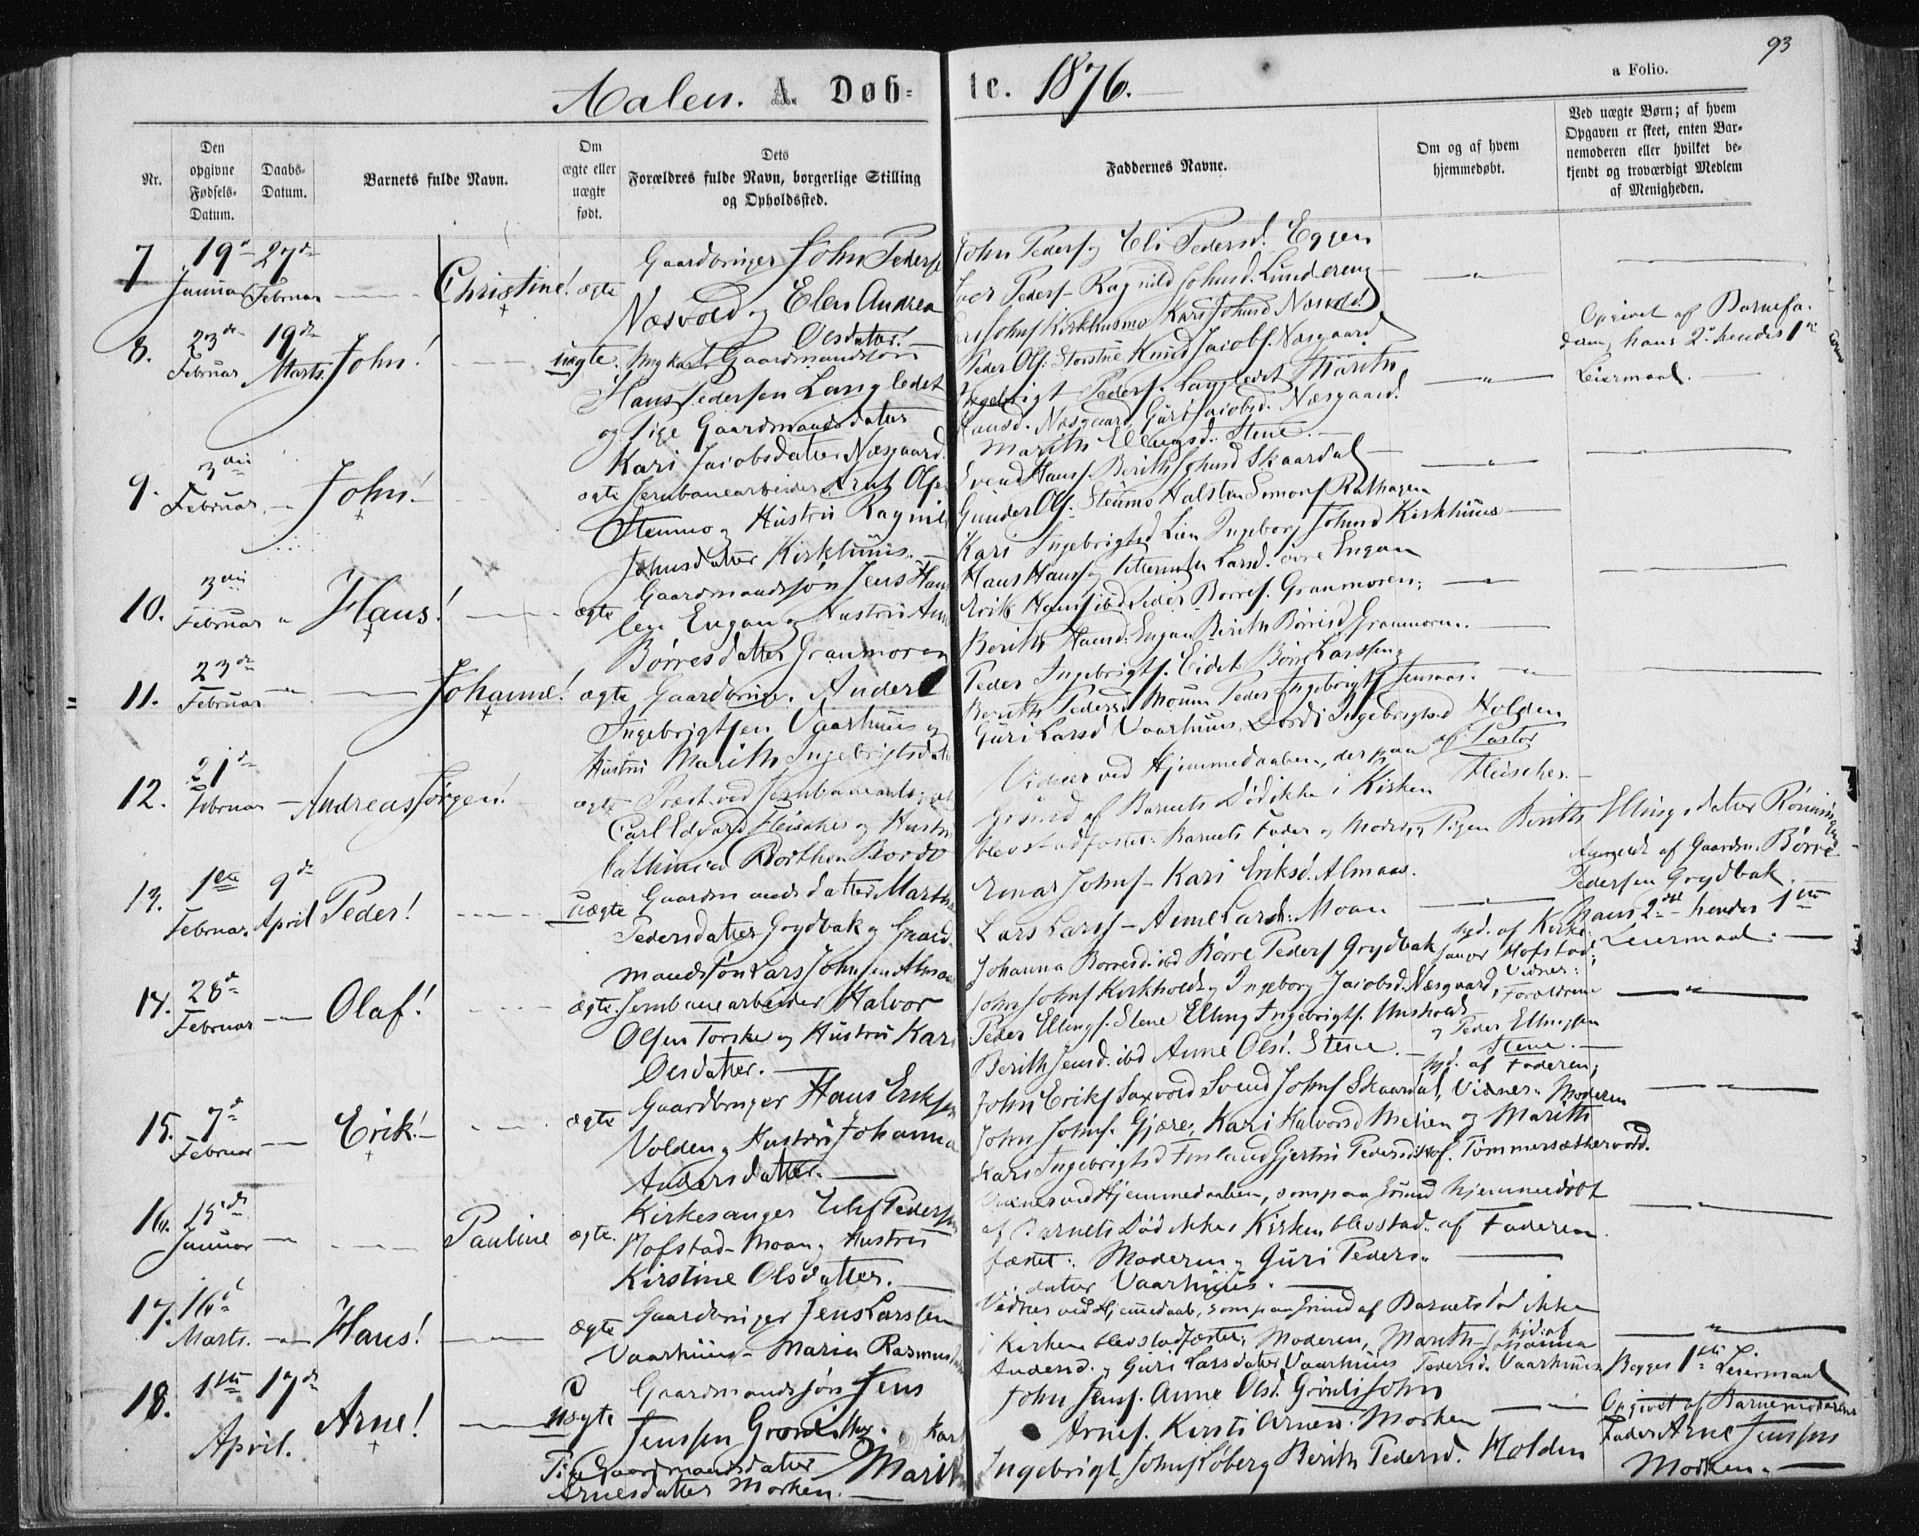 93
a Folio.
Aalen. A. Døb- te. 1876.
Nr.
Den opgivne Fødsels-Datum.
Daabs-Datum.
Barnets fulde Navn.
Om ægte eller uægte født.
Dets Forældres fulde Navn, borgerlige Stilling og Opholdssted.
Faddernes Navne.
Om og af hvem hjemmedøbt.
Ved uægte Børn; af hvem Opgaven er skeet, enten Barnemoderen eller hvilket bekjendt og troværdigt Medlem af Menigheden.
7 19de Januar 27de Februar Christine! ægte
Gaardbruger John Peders
Næsvold og Elen Andrea
Olsdatter.
John Peders og Eli Pedersd. Eggen
Iver Peders - Ragnild Johnsd. Lundereng
Johns Kirkhusmo Kari Johnsd Næsvold
8. 23de Februar 19de Marts. John! uægte.
Ungkarl Gaardmandssøn
Hans Pedersen Langledet
og Pige Gaardmandsdatter
Kari Jacobsdatter Næsgaard.
Peder Ols. Storstue Knud Jacobs. Næsgaard
Ingebrigt Peders. Langledet Marith
Hansd. Næsgaard, Guri Jacobsd. Næsgaard.
Marith Ellingsd. Stene.
Opgivet af Barnefa.
deren, hans 2det hendes 1ste
Leiermaal.
9. 3die Februar John! ægte
Jernbanearbeider Arnt Ols
Stenmo og Hustru Ragnild
Johnsdatter Kirkhuus.
Svend Hans. Berith Johnsd Skaardal
Gunder Ols. Stenmo Halsten Simons Rathagen
Kari Ingebrigtsd Lien Ingeborg Johnsd Kirkhuus
10. 3die Februar Hans! ægte
Gaardmandssøn Jens Han
sen Engan og Hustru Ane
Børresdatter Granmoren
Hans Hans og Larsd. øvre Engan
Erik Hans ibd Peder Børres. Granmoren.
Berith Hansd. Engan Berith Børresd Granmoren.
11. 23de Februar Johanne! ægte
Gaardbruger. Anders
Ingebrigtsen Vaarhuus og
Hustru Marith Ingebrigtsdatter
Peder Ingebrigts. Eidet Børre Larssen
Berith Pedersd Mouen Peder Ingebrigts Jensaas.
Guri Larsd Vaarhuus, Dordi Ingebrigtsd Holden
12. 21de Februar Andreas Jørgen! ægte
Præst ved Jernbaneanlægget
Carl Edvard Fleischer og Hustru
Cathinca Borthen Bordo
Vidner ved Hjemmedaaben, der paa
Grund af Barnets Død ikke i Kirken
blev stadfæstet: Barnets Fader og Moder og Pigen Berith Ellingsdatter Rønningen
af Pastor
Fleischer.
13. 1ste Februar. 9de April Peder! uægte
Gaardmandsdatter Marith
Pedersdatter Grydbak og Gaard-
mandssøn Lars Johnsen Almaas
Einar Johns - Kari Eriksd. Almaas.
Lars Larss - Anne Larsd. Moan
Johanna Børresd. ibd Børre Peders Grydbak
Anmeldt af Gaardm. Børre
Pedersen Grydbak.
hans 2det hendes 1ste
Leiermaal.
14. 28de Februar Olaf! ægte.
Jernbanearbeider Halvor
Olsen Torske og Hustru Kari
Olsdatter.
John Johns Kirkhold og Ingeborg Jacobsd. Næsgaard,
Peder Ellings. Stene Elling Ingebrigts. Unshold
Berith Jensd. ibd Anne Olsd. Stene.
hjd. af Kirke.
sanger Hofstad.
Vidner:
Forældrene
og Peder Ellingsen
Stene.
15. 7de Februar Erik! ægte
Gaardbruger Hans Eriksen
Volden og Hustru Johanna
Andersdatter.
John Eriks Saxvold Svend Johns Skaardal,
John Johns. Gjære, Kari Halvorsd Melien
Kari Ingebrigtsd Finland Gjertru Pedersd.
hjd. af Faderen;
Vidner: Moderen
og Marith
Hof. Tømmersætervold.
16. 15de Januar Pauline ægte.
Kirkesanger Elef Pedersen
Hofstad - Moan og Hustru
Kirstine Olsdatter.
Vidner ved Hjemmedaaben, som paa Grund
af Barnets Død ikke i Kirken blev stad-
fæstet: Moderen og Guri Peders-
datter Vaarhuus.
hjemmedøbt
af Faderen
17. 16de Marts. Hans! ægte
Gaardbruger Jens Larsen
Vaarhuus - Maria Rasmusdatter
Vidner ved Hjemmedaab, som paa Grund af Barnets død ikke
i Kirken blev stadfæstet, Moderen, Marith
Andersd. og Guri Larsdatter Vaarhuus
hjd. af
Johanna
Pedersd. Vaarhuus
18. 1ste 17de April. Arne! uægte
Gaardmandssøn Jens
Jenssen Grønli
Pige Gaardmandsdatter Marit
Arnesdatter Morken.
John Jens. Anne Olsd. Grønli John
Arnes. Kersti Arnesd. Morken
Ingebrigt Johns Koberg Berith Pedersd. Holden
Begges 1ste Leiermaal
Opgivet af Barnemoderens
Fader Arne Jenssen
Morken.